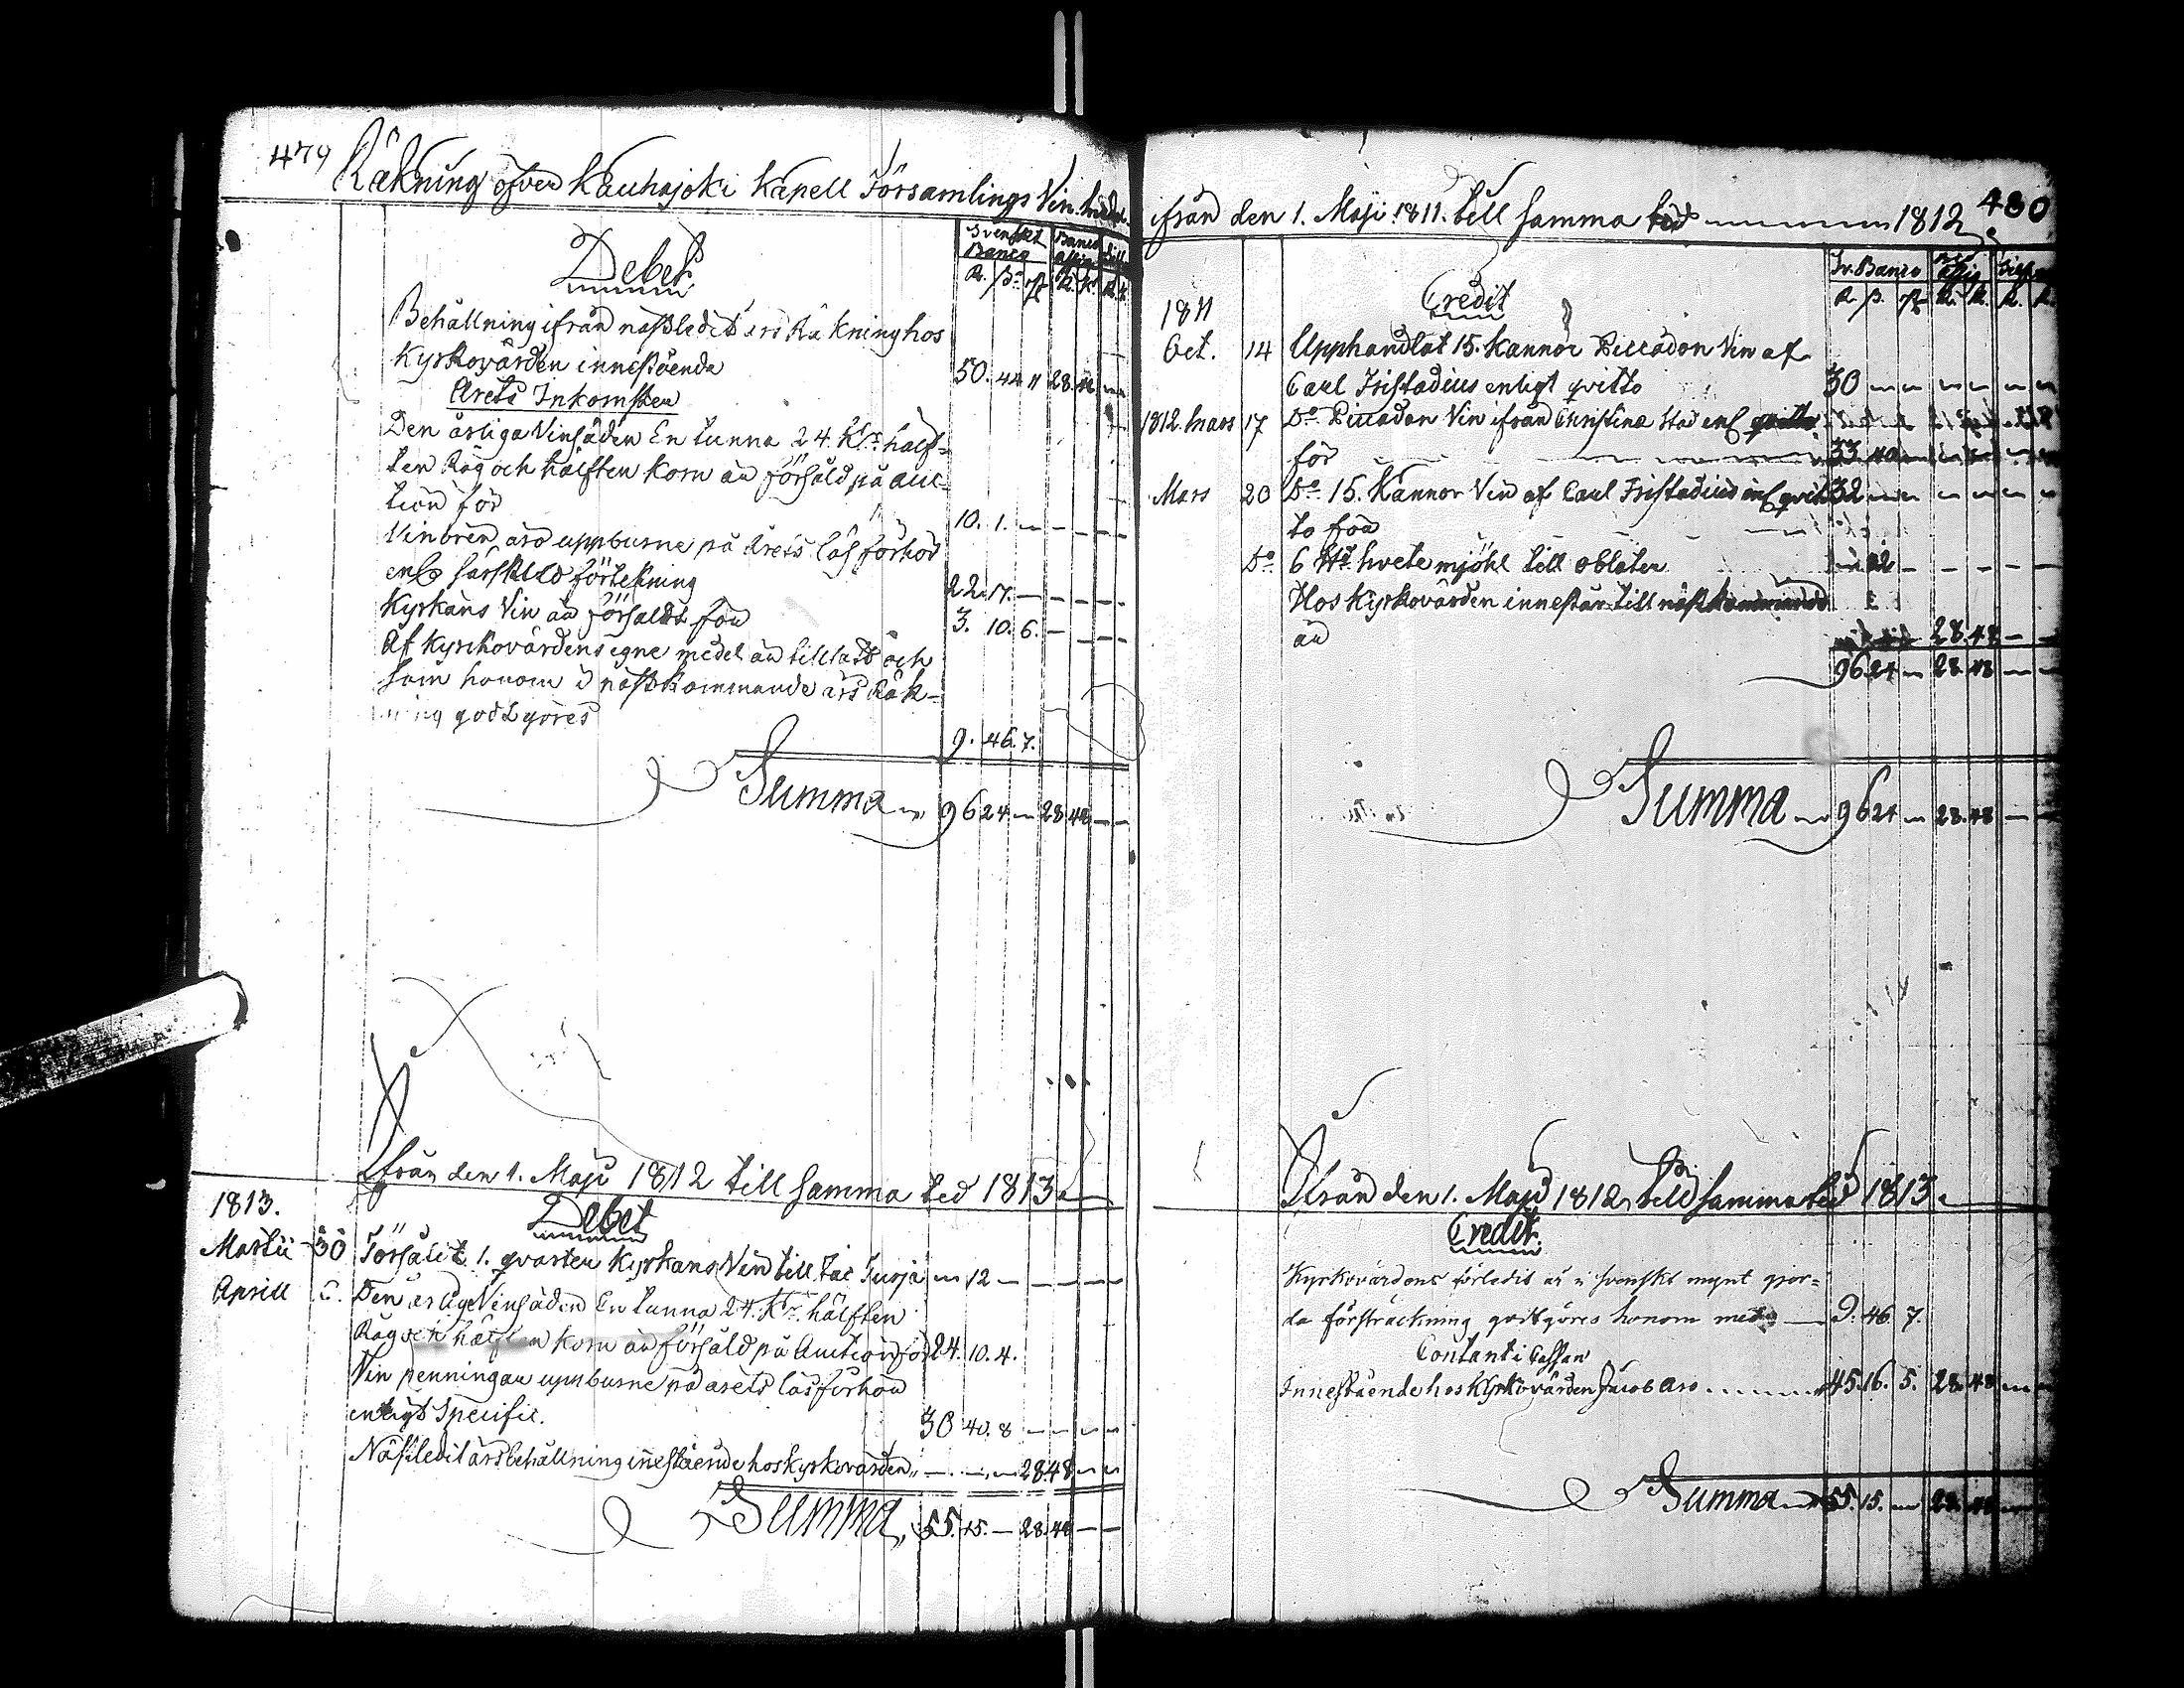 479
Räkning öfver Kauhajoki Kapell Församlings Vin medel
Svenskt Banco
Banco Assign
R. ß. rst. R. K. R. K.
Debet
Behållning ifrån nästledit års Räkning hos
Kyrkovärden innestående 50. 44. 11 28. 48
Årets Inkomster
Den årliga Vinsäden En tunna 24. Kr. hälf-
ten Råg och hälften Korn är försåld på auc-
tion för 10. 1. — — — — —
Vinören äro uppburne på årets läsförhör
enl. särskild förtekning 22. 17. — — — — —
Kyrkans Vin är försåldt för 3. 10. 6. — — — —
Af Kyrkovärdens egne medel är tillsatt och
som honom i nästkommande års Räk-
ning godtgöres 9. 46. 7.
Summa 96 24 — 28 48 — —
Ifrån den 1. Maji 1812 till samma tid 1813.
1813.
Debet
Martii 30 Försålt 1. qvarter Kyrkans Vin till — 12 — — — — —
Aprill Den årlige Vinsäden En tunna 24. Kr. hälften
Råg och hälften Korn är försåld på Auction för 24. 10. 4.
Vin penningar uppburne på årets läsförhör
enligt Specific. 30 40. 8 — — — —
Nästledit årsbehållning innestående hos kyrkovärden — — — 28 48 — —
Summa 55. 15. — 28. 48 — —
480
ifrån den 1. Maji 1811. till samma tid 1812.
Sv. Banco
R. ß. rst. R. K. R. K.
Credit
1811
Oct. 14 Upphandlat 15. Kannor Piccadon Vin af
Carl Fristadius enligt qvitto 30 — — — — — —
1812. Mars 17 Do Piccadon Vin ifrån Christinæ Stad enl. qvitto
för 33 40 — — — — —
Mars 20 Do 15. Kannor Vin af Carl Fristadius enl. qvit- 32 — — — — — —
to för
Do 6 hvetemjöhl till oblater — 32 — — — — —
Hos Kyrkovärden innestår till nästkommande
år 28. 48 — —
96 24 — 28. 48 — —
Summa 96 24 — 28. 48 — —
Ifrån den 1. Maji 1812 till samma tid 1813.
Credit.
Kyrkovärdens förledit år i svenskt mynt gjor-
da försträckning godtgöres honom med 9. 46 7.
Contant i Cassan
Innestående hos Kyrkovärden Jacob Aro 45 16. 5. 28. 48 — —
Summa 55. 15. — 28. 48 — —